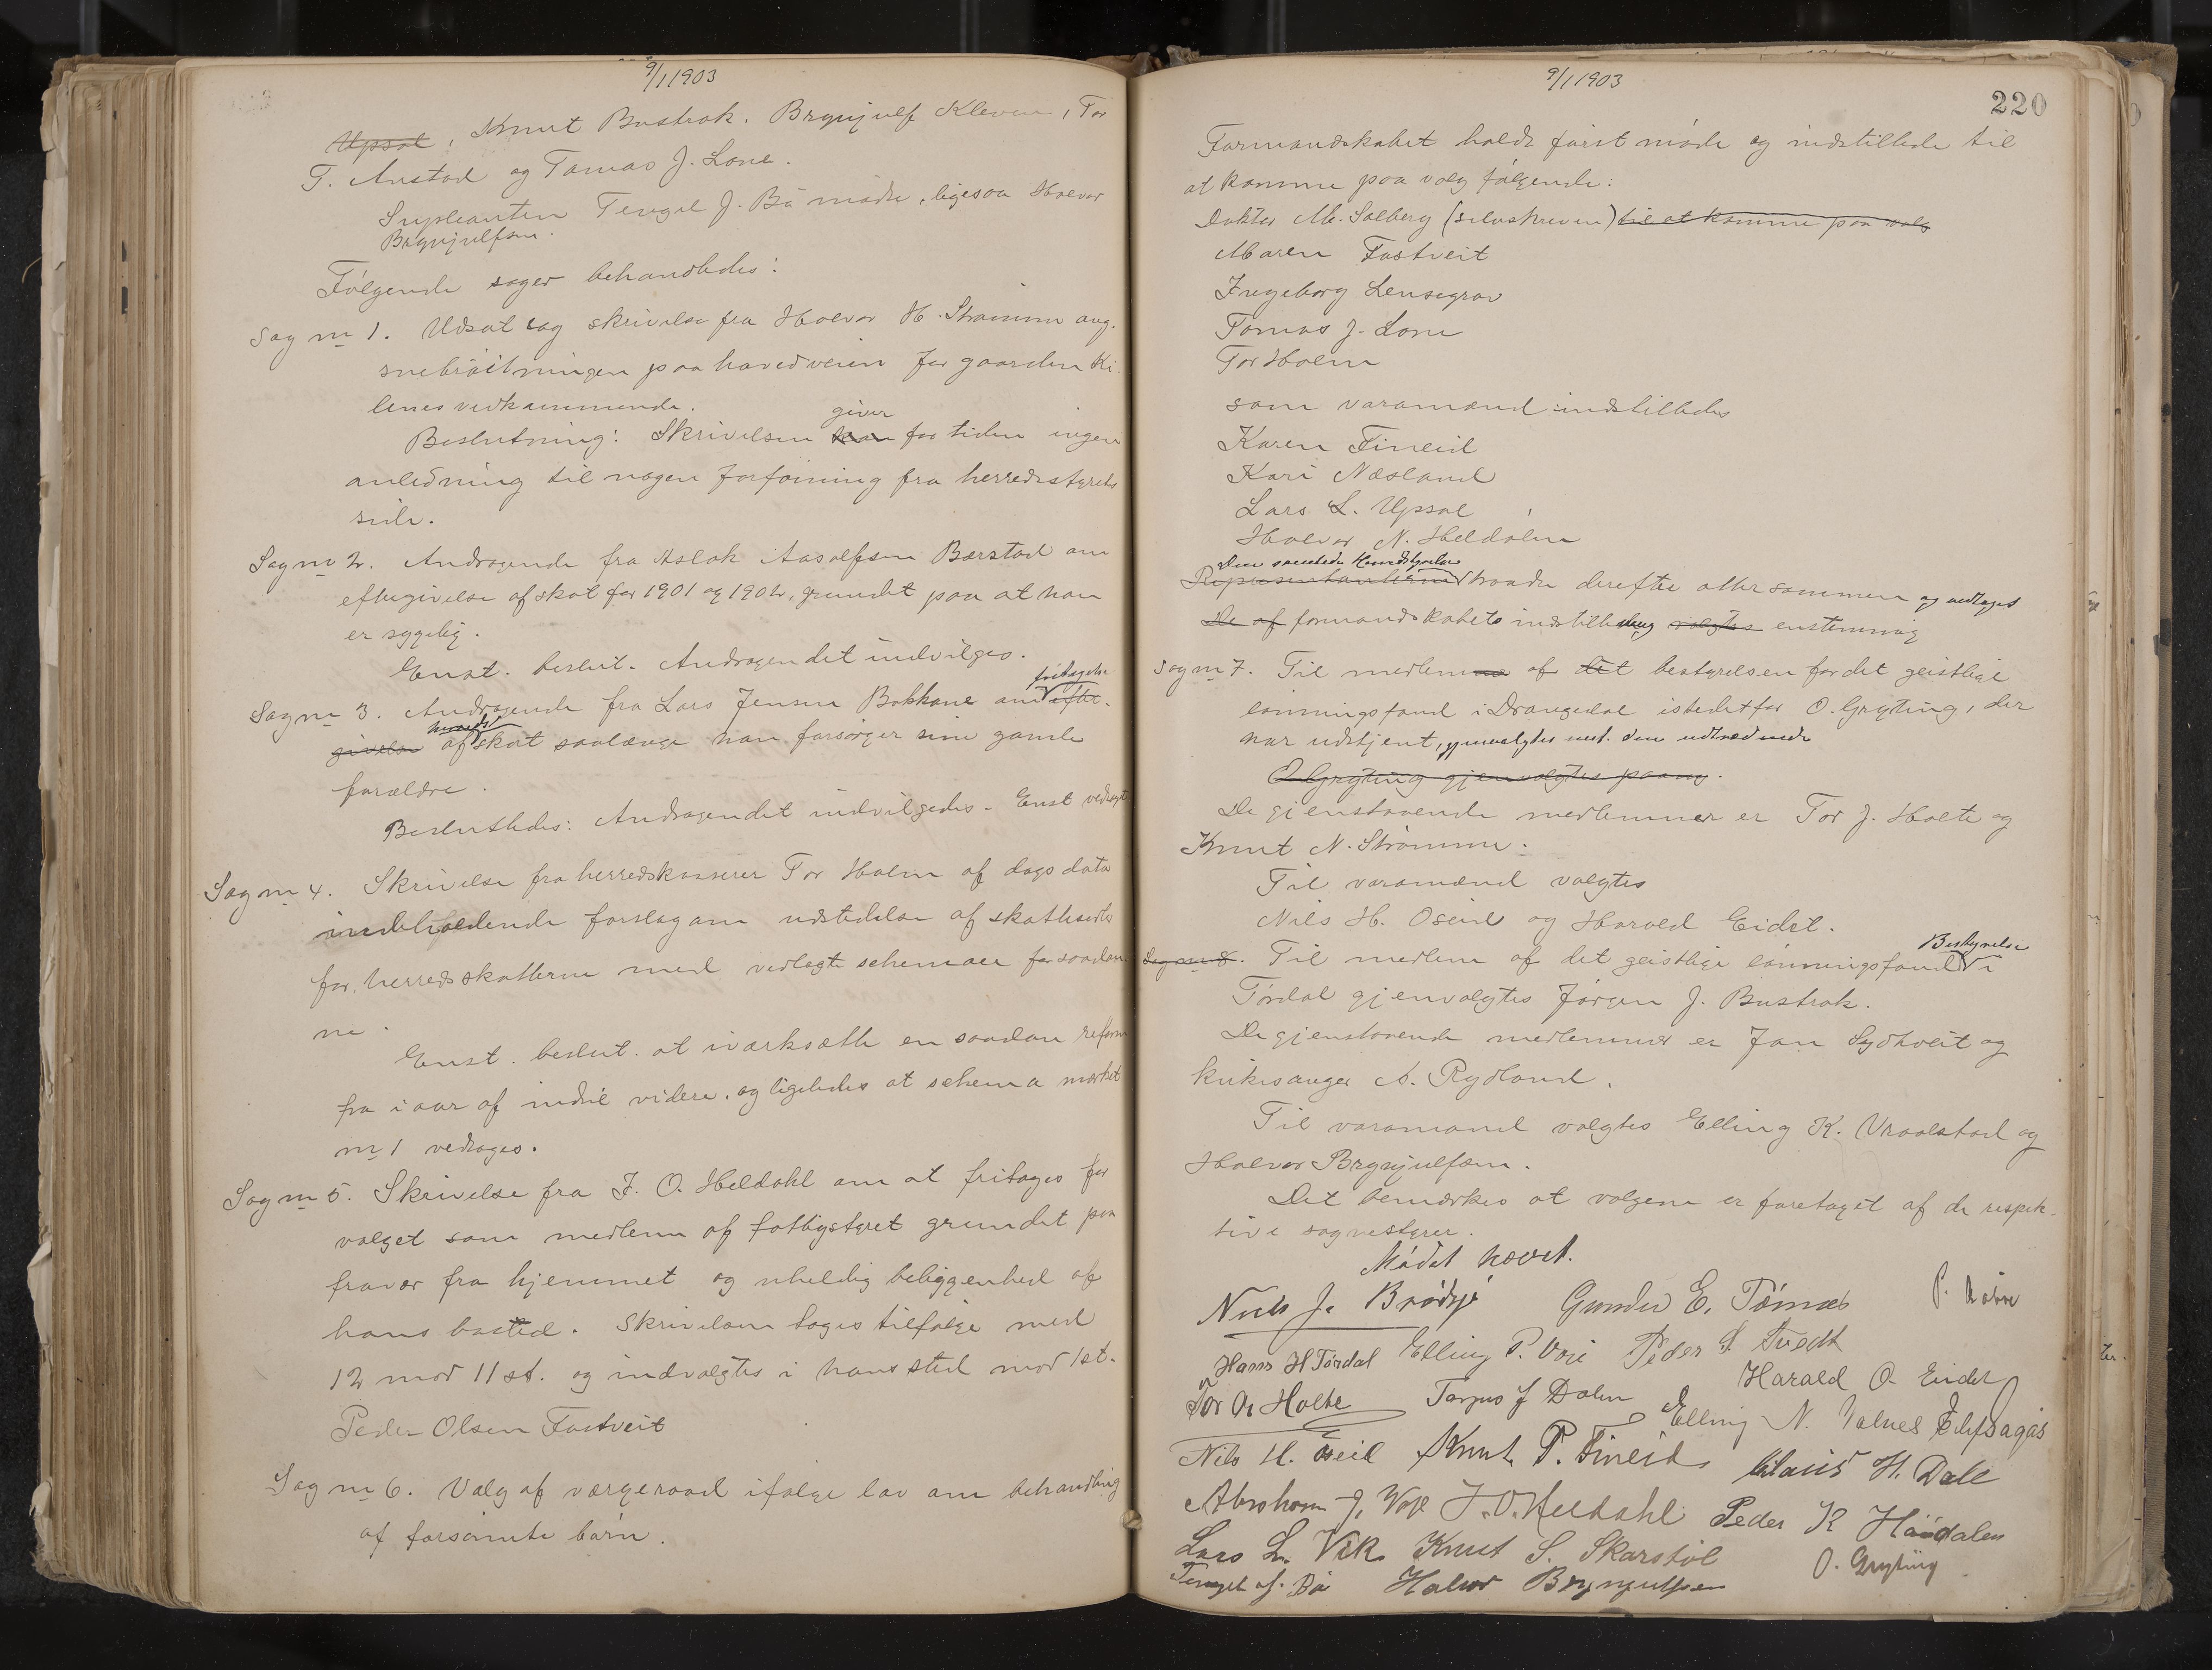 9/1 1903
Upsal, Knut Bustrak. Brynjulf Kleven, Tor
T. Anstad og Tomas J. Lone.
Supleanten Tengel J. Bö mødte, ligesaa Halvor
Brynjulfsen.
Følgende sager behandledes:
Sag no 1. Udsat sag skrivelse fra Halvor H. Strømme ang.
snebrøitningen paa hovedveien for gaarden Ki-
lenes vedkommende.
giver
Beslutning: Skrivelsen for tiden ingen
anledning til nogen forføining fra herredsstyrets
side.
Sag no 2. Andragende fra Aslak Aasolfsen Bærstad om
eftergivelse af skat for 1901 og 1902, grundet paa at han
er sygelig.
Enst. beslut. Andragendet indvilges.
fritagelse
Sag no 3. Andragende fra Lars Jensen Bakkane om efter-
givelse af skat saalænge han forsørger sine gamle
forældre.
Besluttedes: Andragendet indvilgedes. Enst vedtaget
Sag no 4. Skrivelse fra herredskasserer Tor Holm af dags dato
indeholdende forslag om udstedelse af skattesedler
for herredsskatterne med vedlagte schemaer for saadan-
ne.
Enst. beslut. at iværksætte en saadan reform
fra i aar af indtil videre, og ligeledes at schema mærket
no 1 vedtages.
Sag no 5. Skrivelse fra J. O. Heldahl om at fritages for
valget som medlem af fattigstyret grundet paa
fravær fra hjemmet og uheldig beliggenhed af
hans bosted. Skrivelsen toges tilfølge med
12 mod 11 st. og indvalgtes i hans sted mod 1 st.
Peder Olsen Fostveit
Sag no 6. Valg af værgeraad ifølge lov om behandling
af forsømte børn.
9/1 1903
220
Formandskabet holdt først møde og indstillede til
at komme paa valg følgende:
Doktor M. Solberg (selvskreven) til at komme paa valg
Maren Fostveit
Ingeborg Lensegrav
Tomas J. Lone
Tor Holm
som varamænd indstilledes
Karen Fineid
Kari Næsland
Lars L. Upsal
Halvor N. Heldalen
Den samlede Herredstyrelse
Repræsentanterne traadte derefter atter sammen og vedtaget
De af formandskabets indstilling valgtes enstemmig
Sag no 7. Til medlem af det bestyrelsen for det geistlige
lønningsfond i Drangedal istedetfor O. Gryting, der
har udtjent, gjenvalgtes enst. den udtrædende
O Gryting gjenvalgtes paany.
De gjenstaaende medlemmer er Tor J. Holte og
Knut N. Strømme.
Til varamænd valgtes
Nils H. Oseid og Harald Eidet.
Bestyrelse
Sag no 8. Til medlem af det geistlige lønningsfond i
Tørdal gjenvalgtes Jørgen J. Bustrak.
De gjenstaaende medlemmer er Jon Sydtveit og
kirkesanger A. Rydland.
Til varamænd valgtes Elling K. Vraalstad og
Halvor Brynjulfsen.
Det bemærkes at valgene er foretaget af de respek-
tive sognestyrer.
Mødet hævet.
Niels J. Brødsjø Gunder E. Tørnæs
Hans H Tørdal Elling P. Voje Peder S. Tvedt
Tor O. Holte Tarjus J Dalen Harald O. Eidet
Elling N. Valnes
Nils H. Oseid Knut P. Fineid Klaus H. Dale
Abraham J. Voje J. O. Heldahl Peder K Høidalen
Lars L. Vik Knut S. Skarstöl O. Gryting
Tengel J. Bö Halvor Brynjulfsen